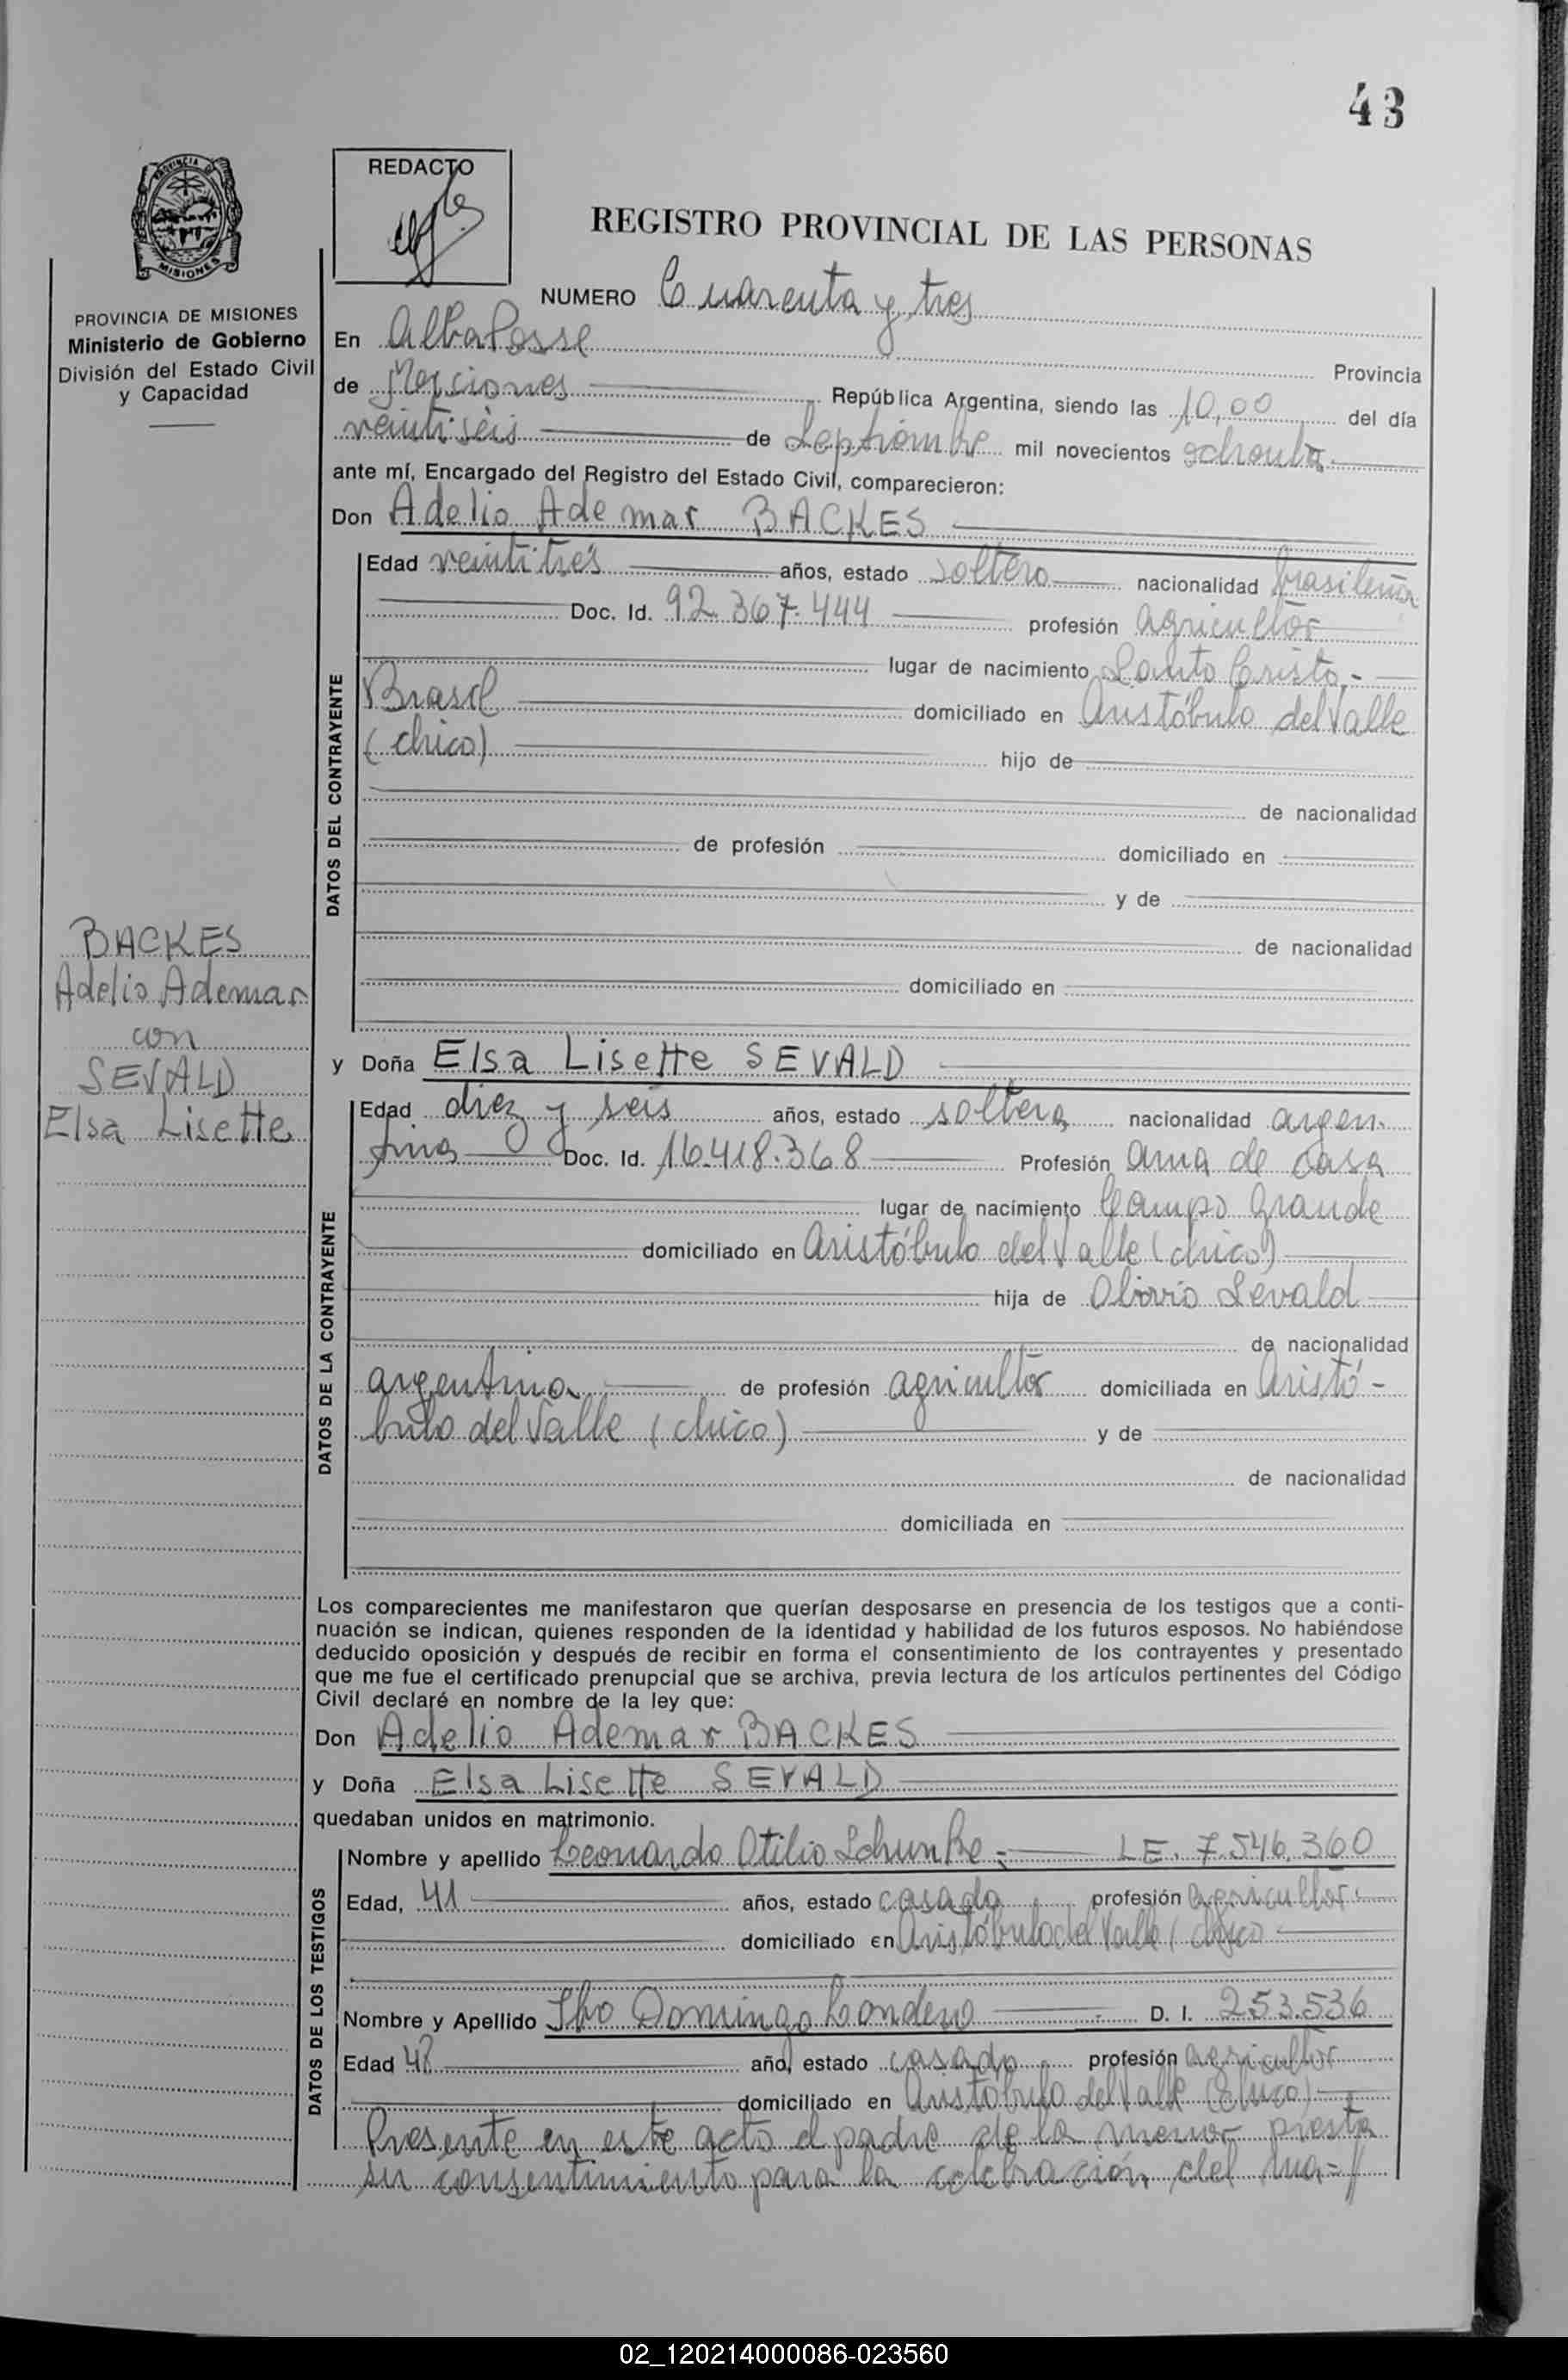 43
REDACTO
REGISTRO PROVINCIAL DE LAS PERSONAS
PROVINCIA DE
MISIONES
PROVINCIA DE MISIONES
Ministerio de Gobierno
División del Estado Civil
y Capacidad
NUMERO Cuarenta y tres
En Alba Posse
Provincia
de Misiones República Argentina, siendo las 10,00 del día
veintiséis de Septiembre mil novecientos ochenta
ante mí, Encargado del Registro del Estado Civil, comparecieron:
Don Adelio Ademar BACKES
DATOS DEL CONTRAYENTE
Edad veintitrés años, estado soltero nacionalidad brasileña
Doc. Id. 92.367.444 profesión agricultor
lugar de nacimiento Santo Cristo,-
Brasil domiciliado en Aristóbulo del Valle
(chico) hijo de
de nacionalidad
de profesión domiciliado en
y de
de nacionalidad
domiciliado en
BACKES
Adelio Ademar
con
SEVALD
Elsa Lisette
y Doña Elsa Lisette SEVALD
DATOS DE LA CONTRAYENTE
Edad diez y seis años, estado soltera nacionalidad argen-
tina Doc. Id. 16.418.368 Profesión ama de casa
lugar de nacimiento Campo Grande
domiciliado en Aristóbulo del Valle (chico)
hija de Olivio Sevald
de nacionalidad
argentina de profesión agricultor domiciliada en Aristó-
bulo del Valle (chico) y de
de nacionalidad
domiciliada en
Los comparecientes me manifestaron que querían desposarse en presencia de los testigos que a conti-
nuación se indican, quienes responden de la identidad y habilidad de los futuros esposos. No habiéndose
deducido oposición y después de recibir en forma el consentimiento de los contrayentes y presentado
que me fue el certificado prenupcial que se archiva, previa lectura de los artículos pertinentes del Código
Civil declaré en nombre de la ley que:
Don Adelio Ademar BACKES
y Doña Elsa Lisette SEVALD
quedaban unidos en matrimonio.
DATOS DE LOS TESTIGOS
Nombre y apellido Leonardo Otilio Schunke.- LE. 7.546.360
Edad, 41 años, estado casado profesión agricultor
domiciliado en Aristóbulo del Valle (chico
Nombre y Apellido Ilvo Domingo Londero D. I. 253.536
Edad 48 año, estado casado profesión agricultor
domiciliado en Aristóbulo del Valle (chico)
Presente en este acto el padre de la menor presta
su consentimiento para la celebración del ma-//
02_120214000086-023560